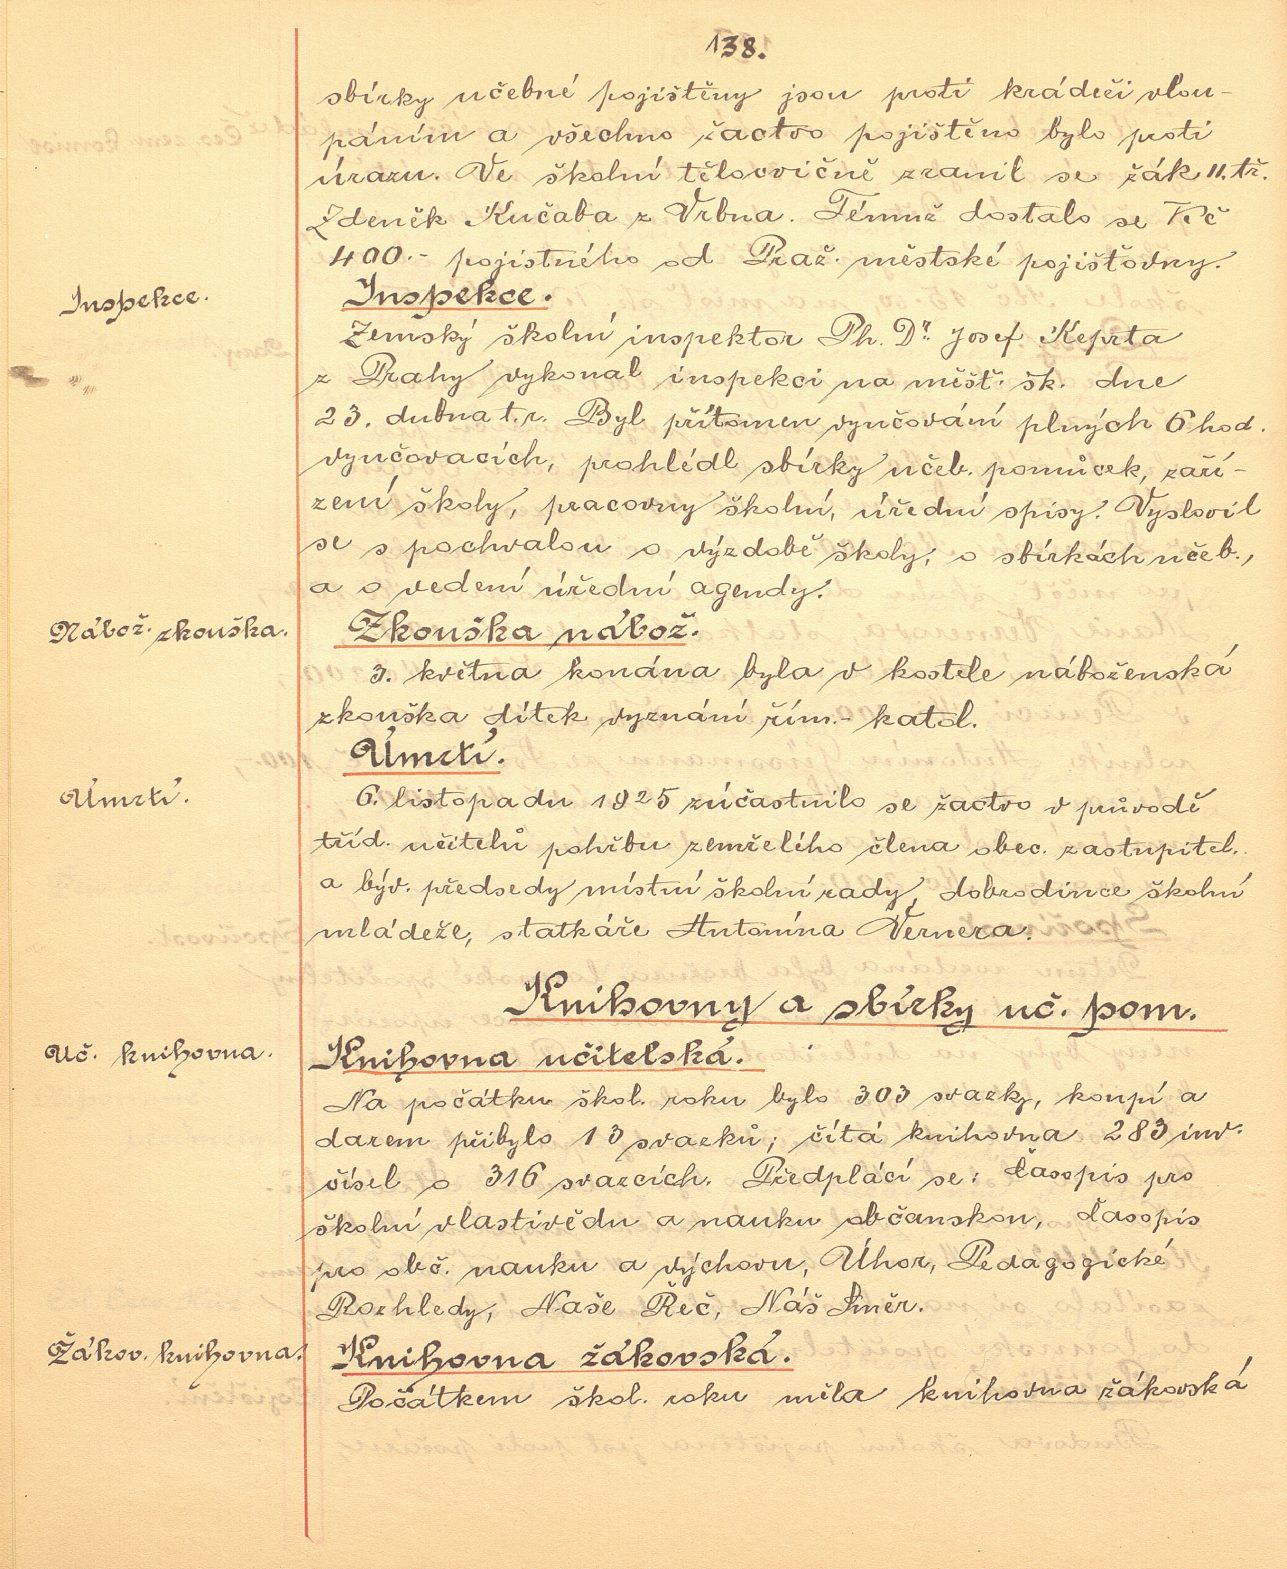 138.
sbírky učebné pojištěny jsou proti krádeži vlou-
páním a všechno žactvo pojištěno bylo proti
úrazu. Ve školní tělocvičně zranil se žák II. tř.
Zdeněk Kučaba z Vrbna. Témuž dostalo se Kč
400.- pojistného od Praž. městské pojišťovny.
Inspekce.
Inspekce.
Zemský školní inspektor Ph. Dr. Josef Keprta
z Prahy vykonal inspekci na měšť. šk. dne
23. dubna t.r. Byl přítomen vyučování plných 6 hod.
vyučovacích, prohlédl sbírky učeb. pomůcek, zaří-
zení školy, pracovny školní, úřední spisy. Vyslovil
se s pochvalou o výzdobě školy, o sbírkách učeb.,
a o vedení úřední agendy.
Nábož. zkouška.
Zkouška nábož.
3. května konána byla v kostele náboženská
zkouška dítek vyznání řím.- katol.
Úmrtí.
Úmrtí.
6. listopadu 1925 zúčastnilo se žactvo v průvodě
tříd. učitelů pohřbu zemřelého člena obec. zastupitel.
a býv. předsedy místní školní rady, dobrodince školní
mládeže, statkáře Antonína Vernera.
Knihovny a sbírky uč. pom.
Uč. knihovna.
Knihovna učitelská.
Na počátku škol. roku bylo 303 svazky, koupí a
darem přibylo 13 svazků; čítá knihovna 283 inv.
čísel o 316 svazcích. Předplácí se: Časopis pro
školní vlastivědu a nauku občanskou, Časopis
pro obč. nauku a výchovu, Úhor, Pedagogické
Rozhledy, Naše Řeč, Náš Směr.
Žákov. knihovna.
Knihovna žákovská.
Počátkem škol. roku měla knihovna žákovská